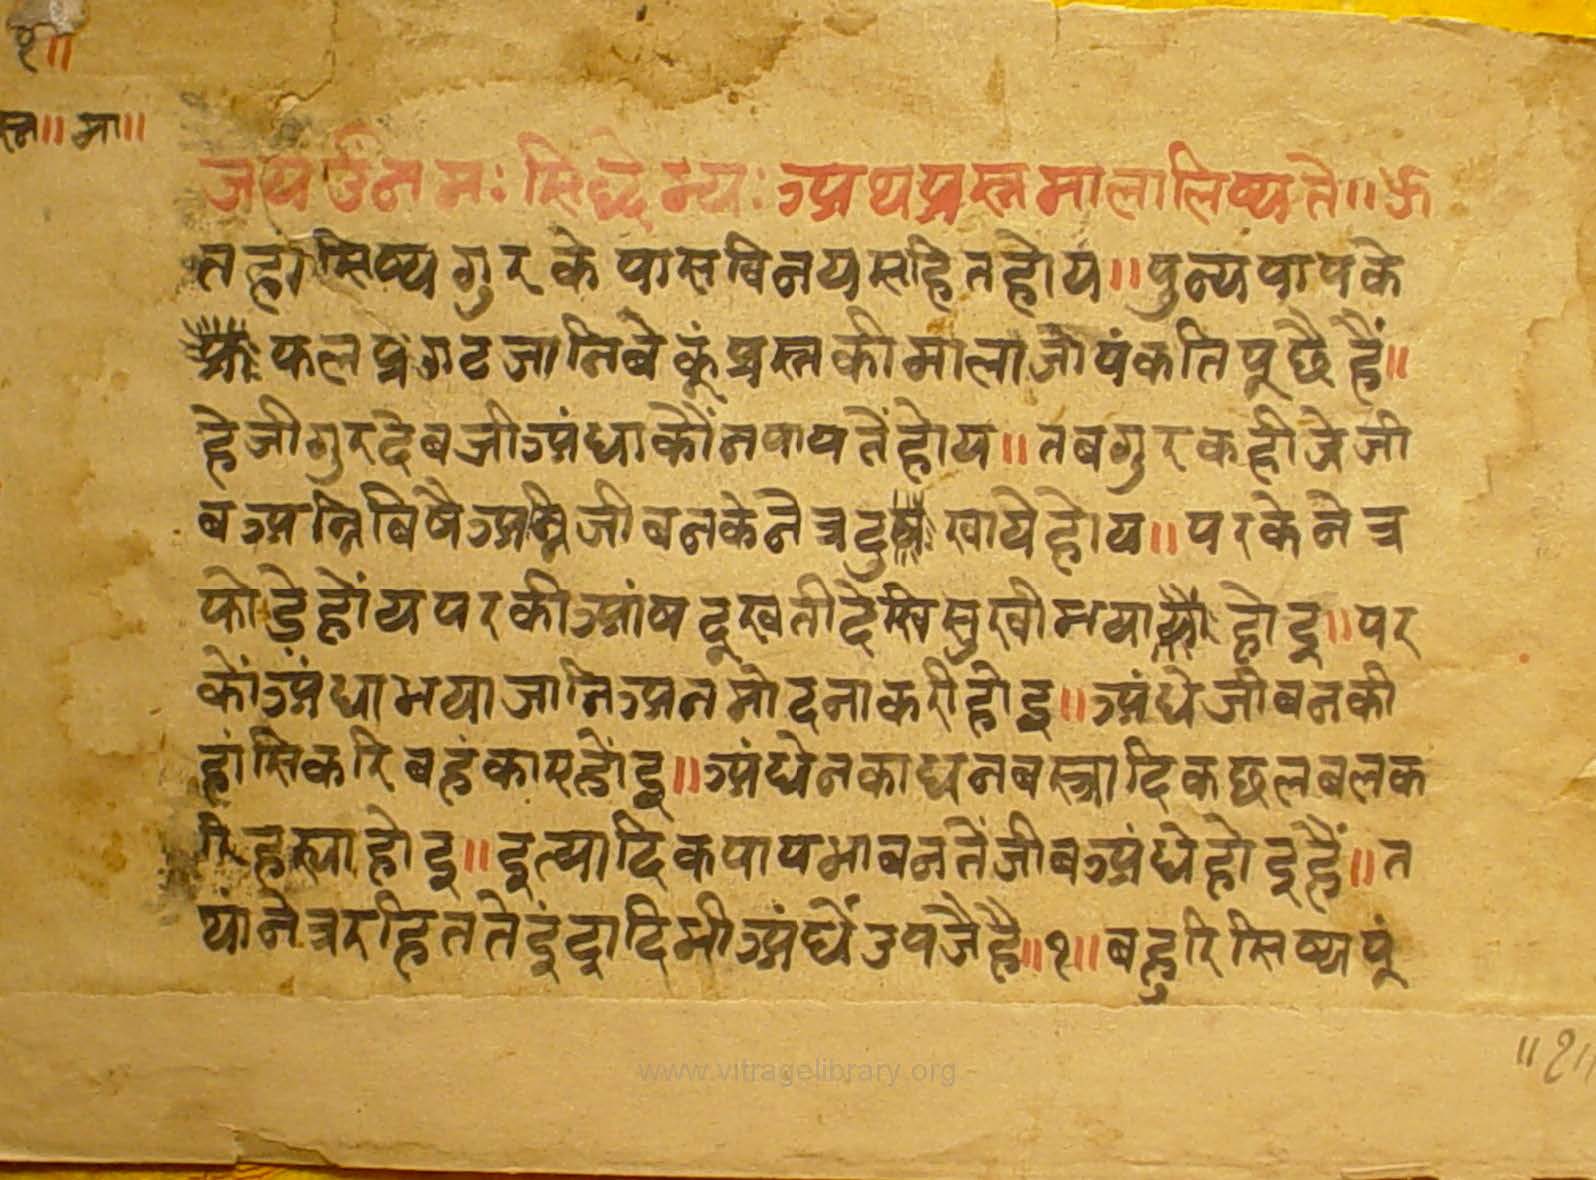 १॥
स्न॥ मा॥
जथ उंनमः सिद्धेभ्यः अथ प्रस्नमाला लिष्यते॥
तहां सिष्य गुर के पास विनय सहित होय॥ पुन्य पाप के
फल प्रगट जानिबे कूं प्रस्न की माला जो पंकति पूछै हैं॥
हे जी गुरदेवजी अंधा कौंन पाप तें होय॥ तब गुर कही जे जी
व अग्नि विषै अग्नि जीवन के नेत्र दुखाये होय॥ पर के नेत्र
फोडे होंय पर की आंष दूखती देखि सुखी भया होइ॥ पर
कों अंधा भया जानि अनमोदना करी होइ॥ अंधे जीवन की
हांसि करि बहंकास होंइ॥ अंधेन का धन बस्त्रादिक छल बल क
रि हस्या होइ॥ इत्यादिक पाप भावन तें जीव अंधे होइ हैं॥ त
थां नेत्र रहित तेइंद्रादि भी अंधें उपजै है॥१॥ बहुरि सिष्य पूं
www.vitragelibrary.org
॥१॥